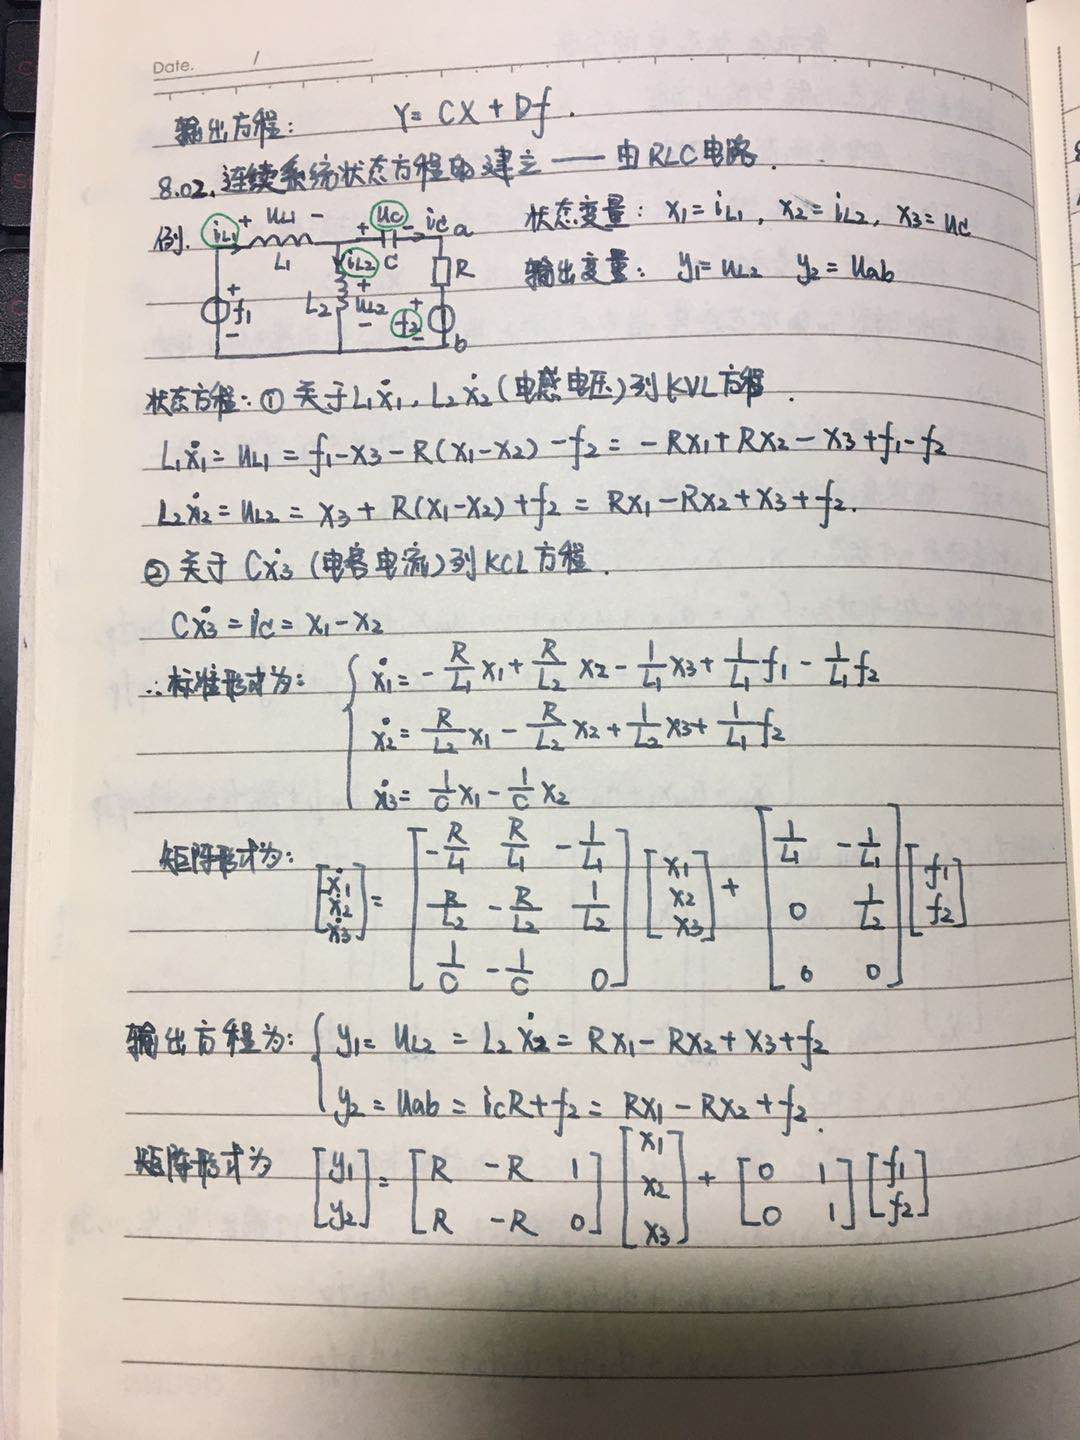 Date. /
输出方程: Y = CX + Df.
8.02. 连续系统状态方程的建立 —— 由RLC电路.
例. iL1 + uL1 - + uC - iC a 状态变量: x1 = iL1, x2 = iL2, x3 = uC
L1 iL2 C R 输出变量: y1 = uL2 y2 = uab
+ f1 - L2 + uL2 - + f2 - b
状态方程: ① 关于L1ẋ1, L2ẋ2 (电感电压)列KVL方程.
L1ẋ1 = uL1 = f1 - x3 - R(x1-x2) - f2 = -Rx1 + Rx2 - x3 + f1 - f2
L2ẋ2 = uL2 = x3 + R(x1-x2) + f2 = Rx1 - Rx2 + x3 + f2.
② 关于 Cẋ3 (电容电流)列KCL方程.
Cẋ3 = iC = x1 - x2
∴标准形式为: { ẋ1 = -R/L1 x1 + R/L2 x2 - 1/L1 x3 + 1/L1 f1 - 1/L1 f2
ẋ2 = R/L2 x1 - R/L2 x2 + 1/L2 x3 + 1/L1 f2
ẋ3 = 1/C x1 - 1/C x2
矩阵形式为: [ẋ1 ẋ2 ẋ3] = [-R/L1 R/L1 -1/L1; R/L2 -R/L2 1/L2; 1/C -1/C 0] [x1 x2 x3] + [1/L1 -1/L1; 0 1/L2; 0 0] [f1 f2]
输出方程为: { y1 = uL2 = L2ẋ2 = Rx1 - Rx2 + x3 + f2
y2 = uab = iCR + f2 = Rx1 - Rx2 + f2.
矩阵形式为 [y1 y2] = [R -R 1; R -R 0] [x1 x2 x3] + [0 1; 0 1] [f1 f2]